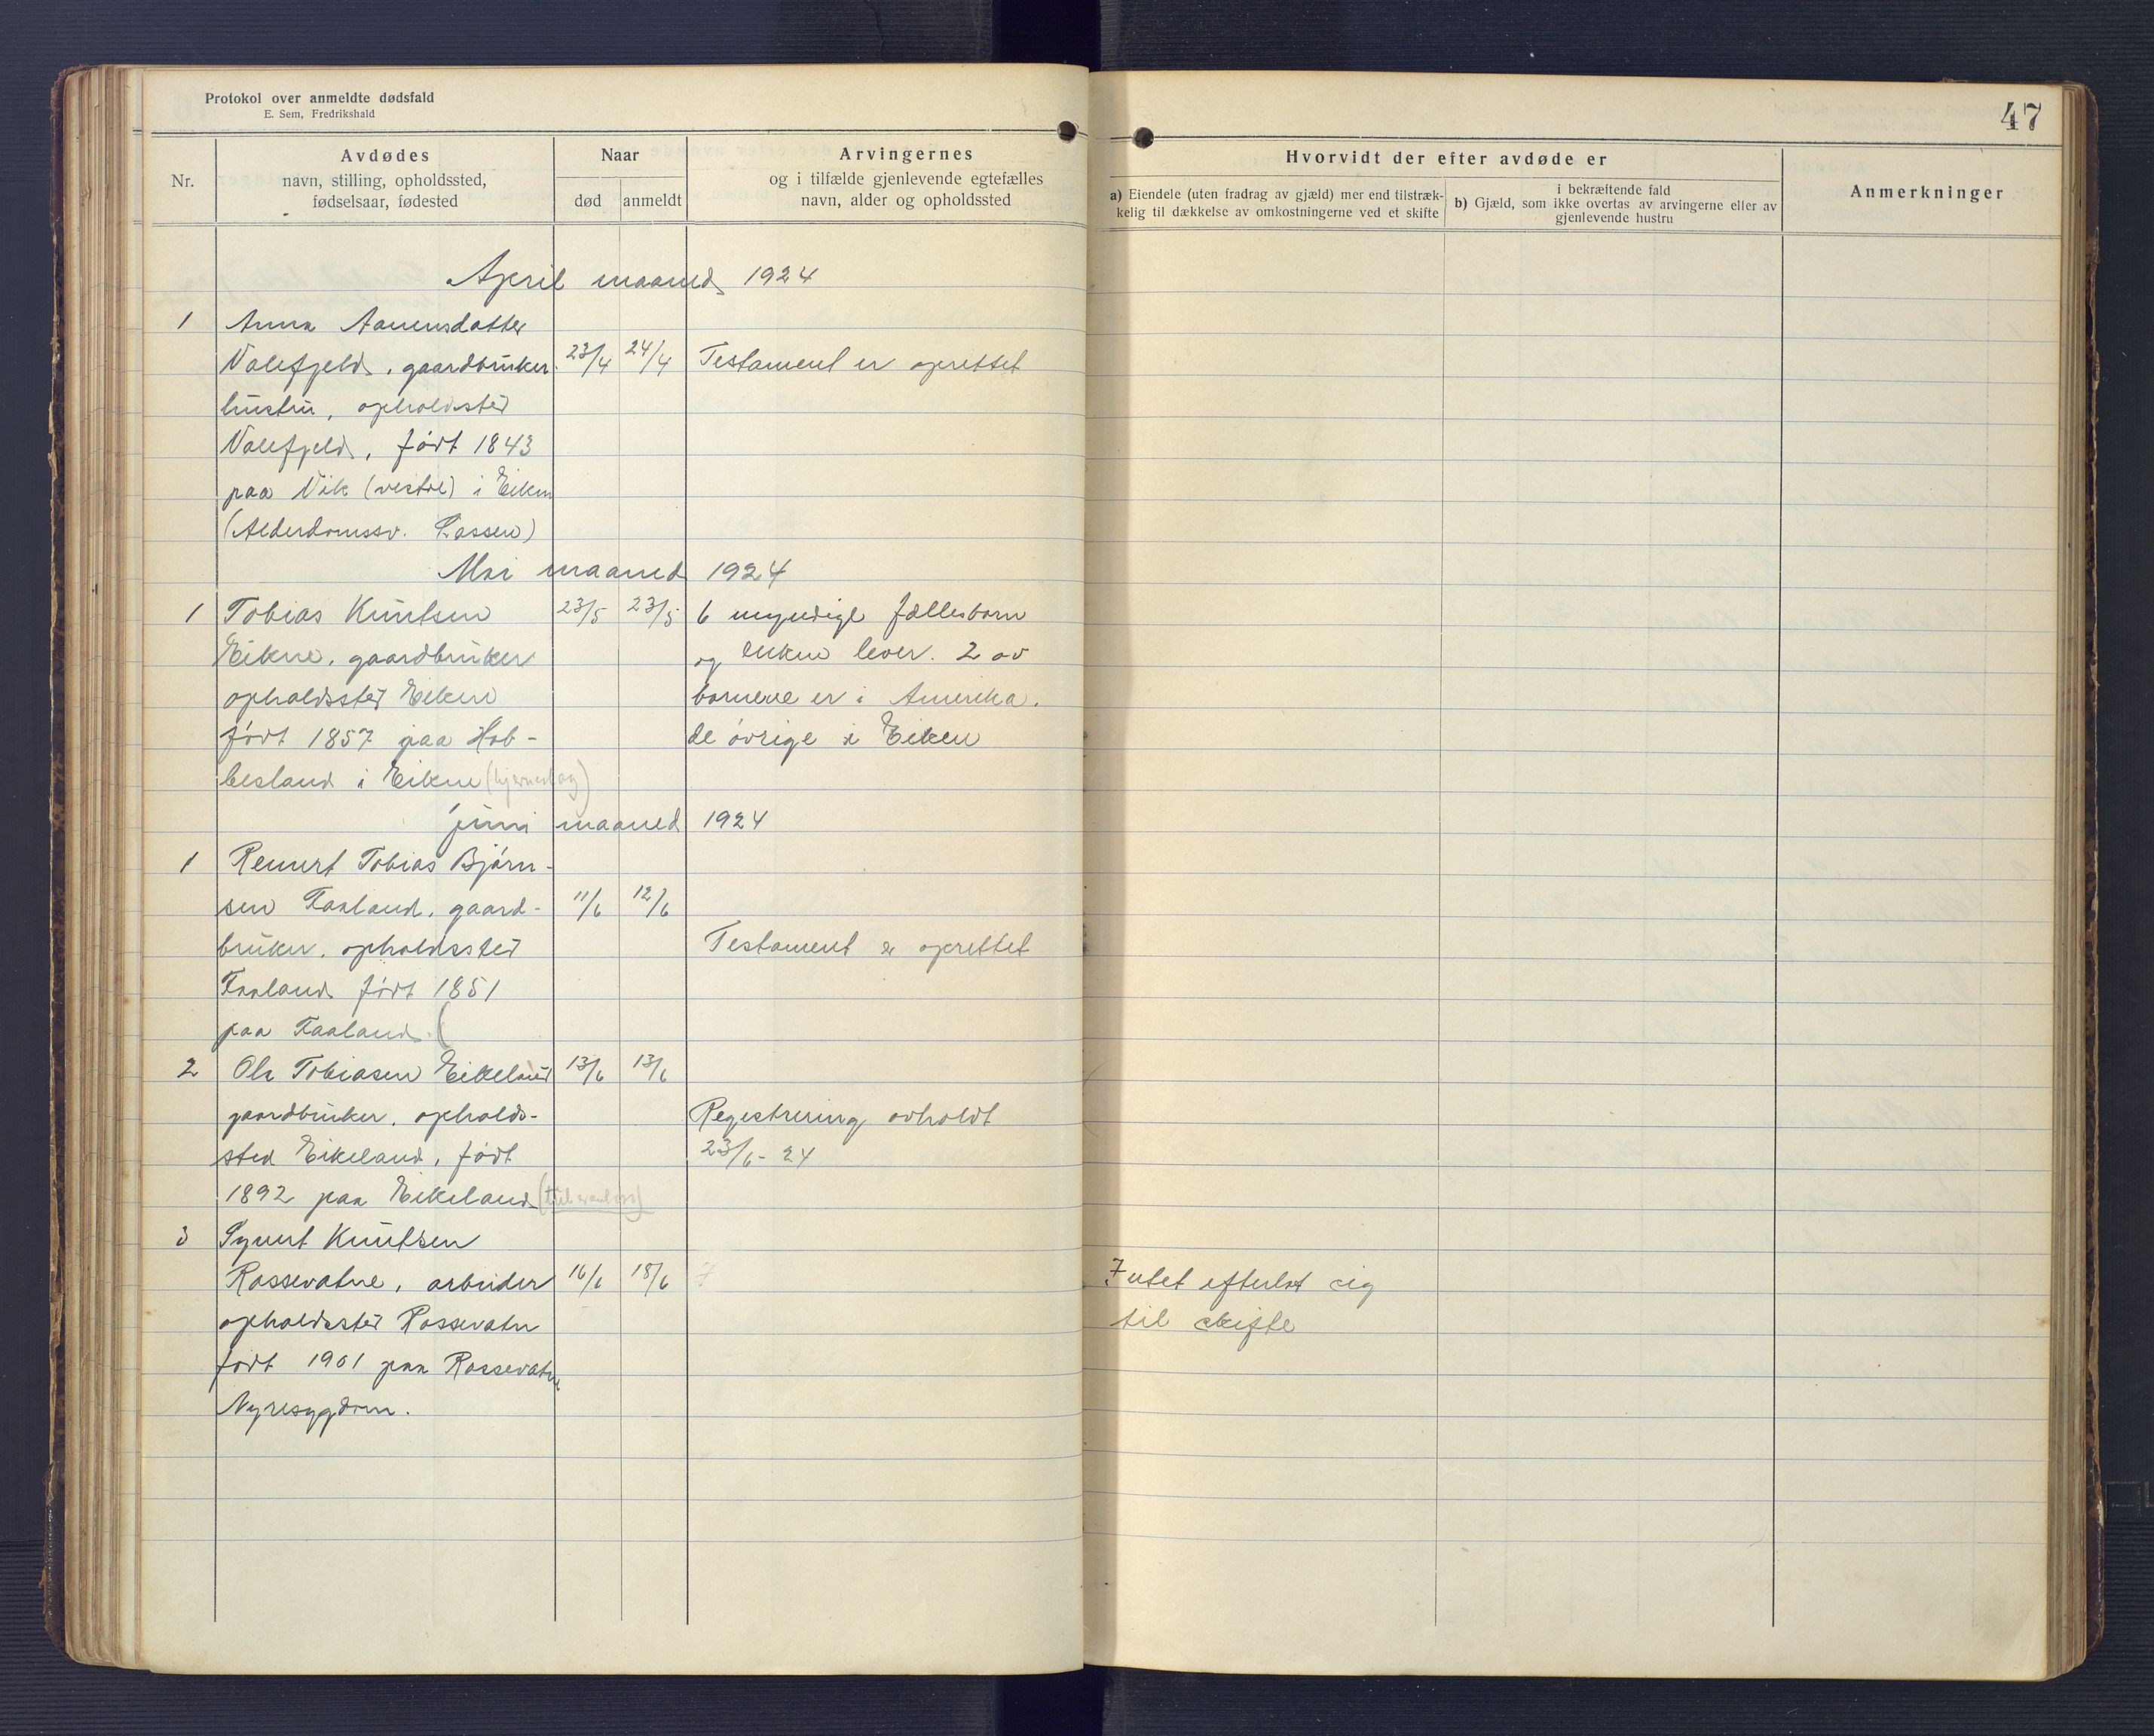 Protokol over anmeldte dødsfald
E. Sem, Fredrikshald
47
Nr.
Avdødes
navn, stilling, opholdssted,
fødselsaar, fødested
Naar
død
anmeldt
Arvingernes
og i tilfælde gjenlevende egtefælles
navn, alder og opholdssted
Hvorvidt der efter avdøde er
a) Eiendele (uten fradrag av gjæld) mer end tilstræk-
kelig til dækkelse av omkostningerne ved et skifte
i bekræftende fald
b) Gjæld, som ikke overtas av arvingerne eller av
gjenlevende hustru
Anmerkninger
April maaned 1924
1 Anna Aanensdatter
Vollefjeld, gaardbruker 23/4 24/4 Testament er oprettet
hustru, opholdssted
Vollefjeld, født 1843
paa Vik (vestre) i Eiken
(Alderdomssv. Lassen)
Mai maaned 1924
1 Tobias Knutsen 23/5 23/5 6 umyndige fællesbarn
Eikne, gaardbruker og enken lever. 2 av
opholdssted Eiken barnene er i Amerika.
født 1857 paa Hob- de øvrige i Eiken
besland i Eikne (hjerneslag)
juni maaned 1924
1 Remert Tobias Bjørn-
sen Faaland, gaard- 11/6 12/6
bruker, opholdssted Testament er oprettet
Faaland født 1851
paa Faaland. (
2 Ola Tobiasen Eikeland 13/6 13/6
gaardbruker, opholds- Registrering avholdt
sted Eikeland, født 23/6- 24
1892 paa Eikeland
3 Syvert Knutsen
Rossevatne, arbeider 16/6 18/6 Intet efterlat sig
opholdssted Rossevatn til skifte
født 1901 paa Rossevatne
Nyresygdom.